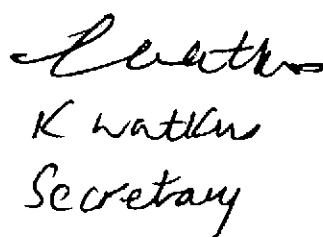 K Watkins
Secretary